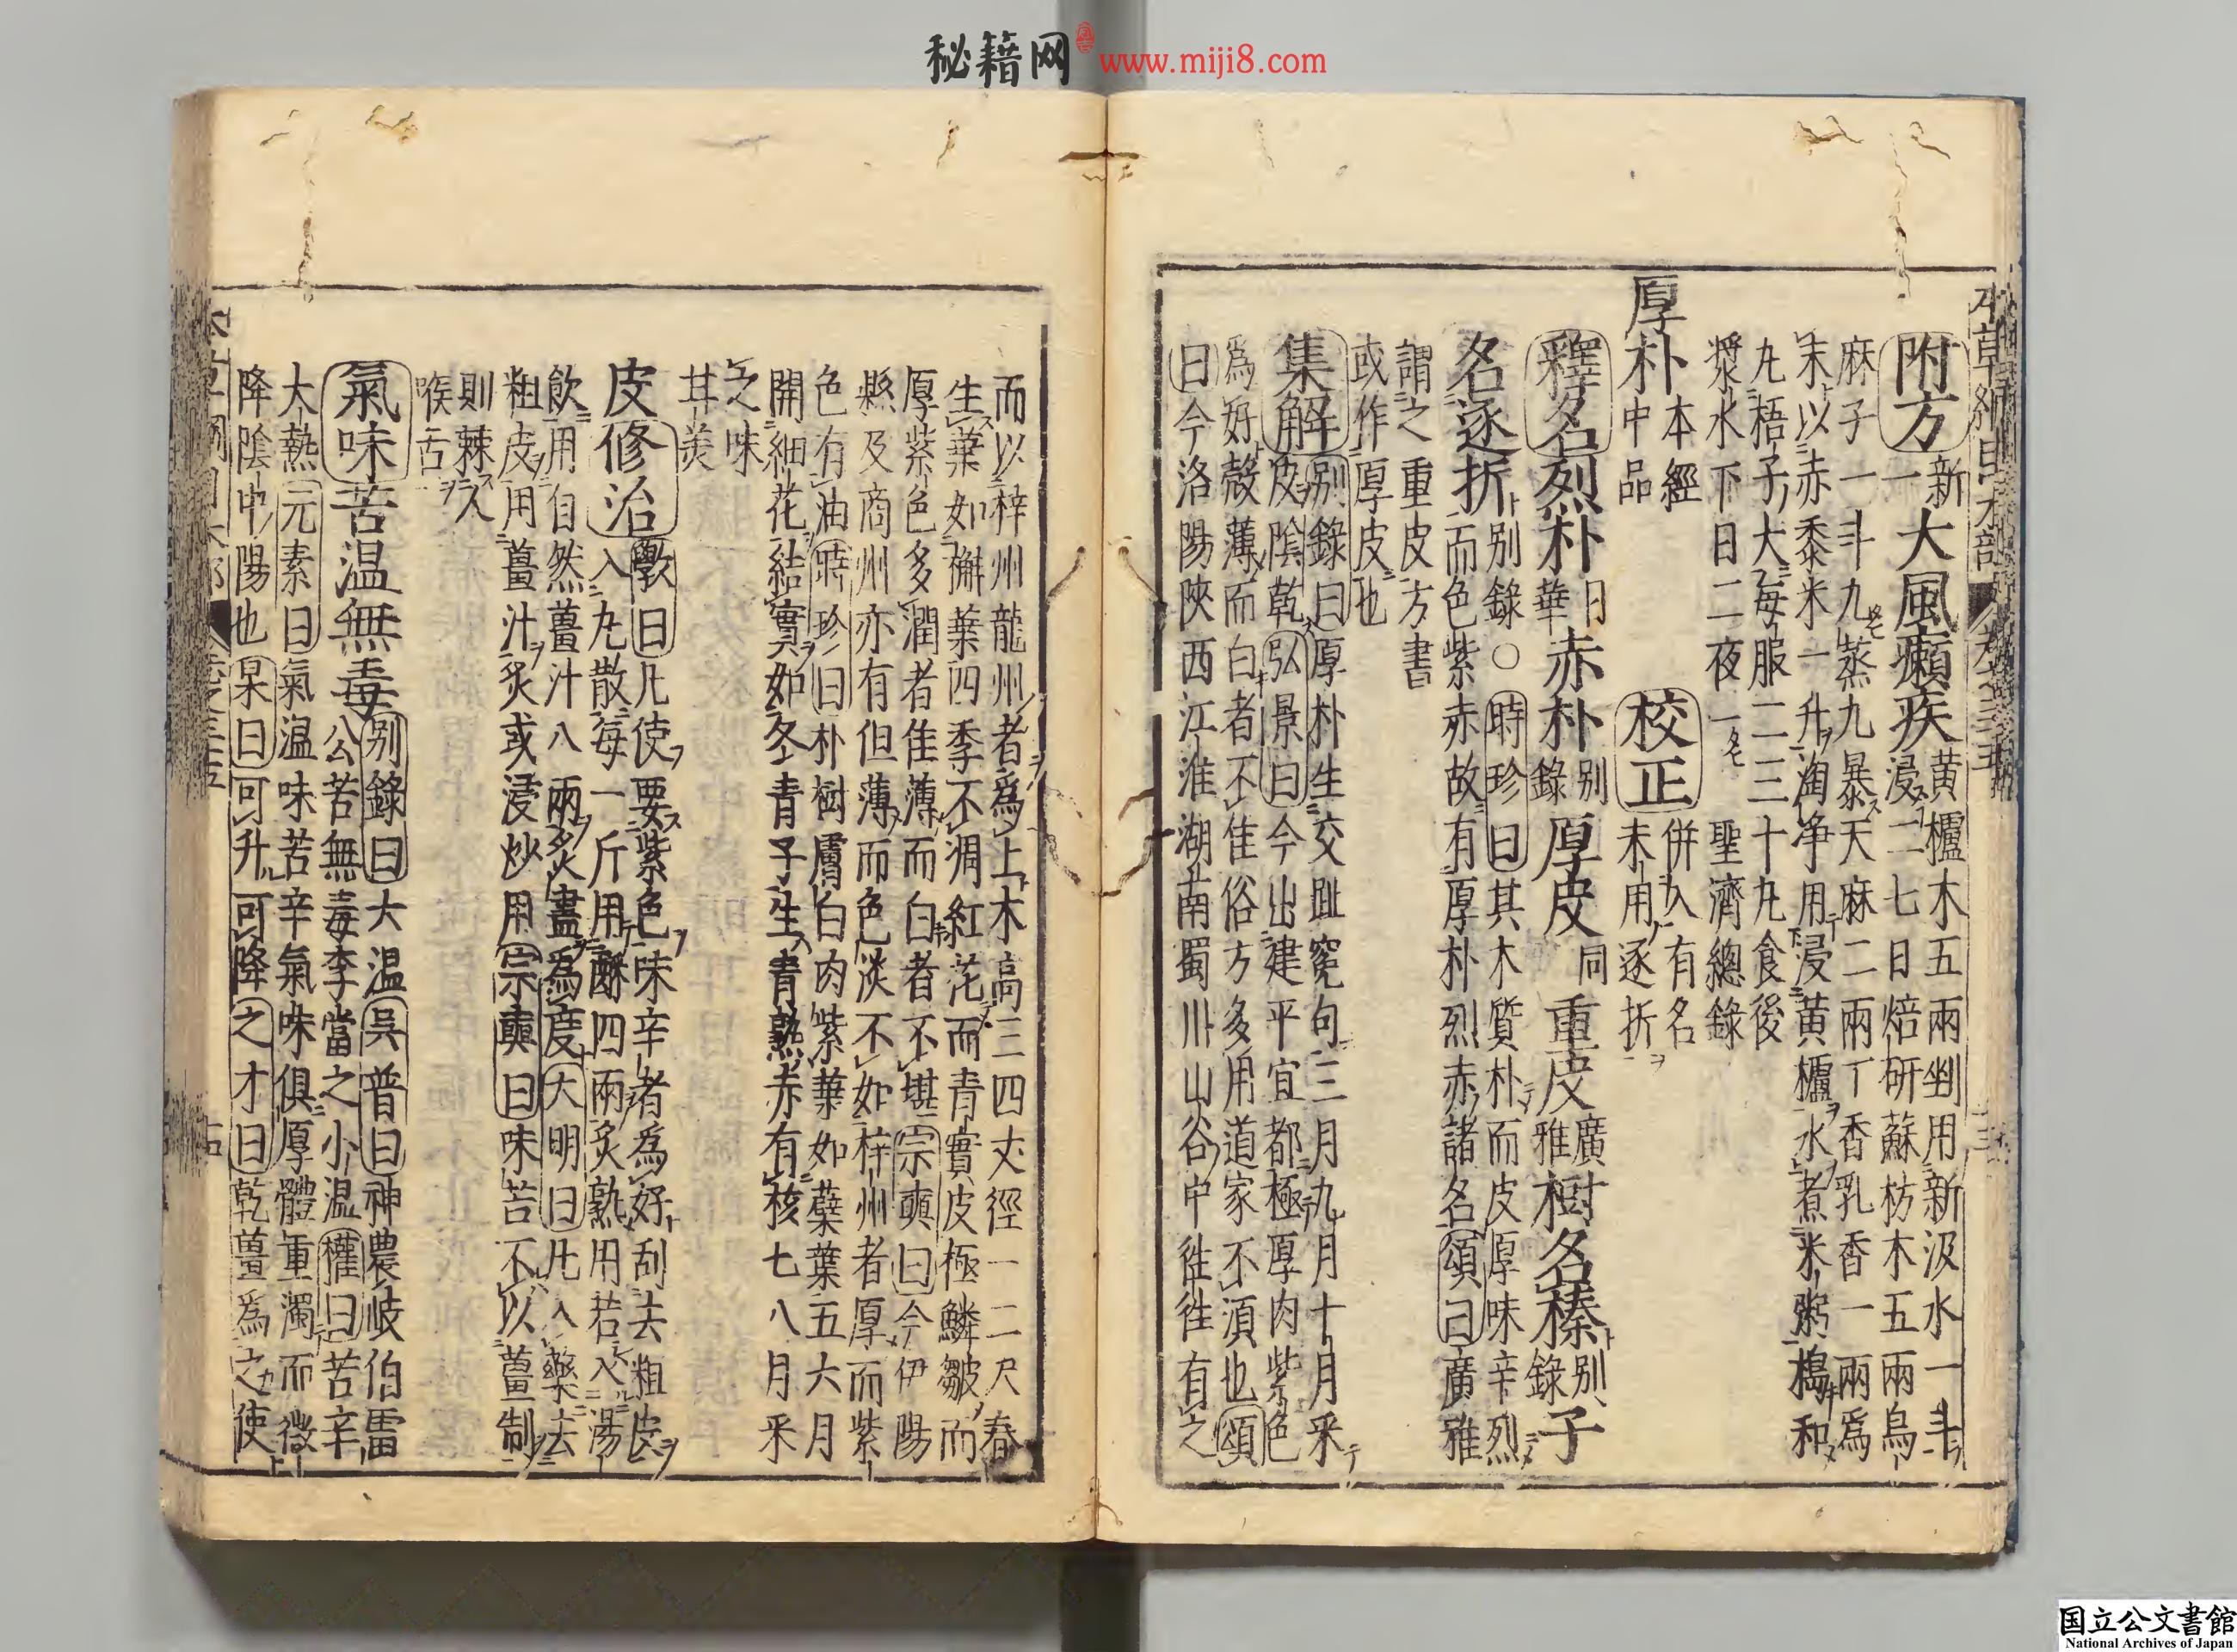 秘籍网 www.miji8.com
附方
新一
大風癩疾
黄櫨木五兩剉用新汲水一斗
浸二七日焙研蘇枋木五兩烏
麻子一斗九蒸九暴天麻二兩丁香乳香一兩爲
末以赤黍米一升淘净用浸黄櫨水煮米粥搗和
丸梧子大每服二三十丸食後
漿水下日二夜一
聖濟總錄
厚朴
本經
中品
校正
併入有名
未用逐折
釋名
烈朴
日華
赤朴
别錄
厚皮
同
重皮
廣雅
樹名榛
别錄
子
名逐折
别錄○時珍曰其木質朴而皮厚味辛烈
而色紫赤故有厚朴烈赤諸名頌曰廣雅
謂之重皮方書
或作厚皮也
集解
别錄曰厚朴生交趾寃句三月九月十月采
皮陰乾弘景曰今出建平宜都極厚肉紫色
爲好殻薄而白者不佳俗方多用道家不須也頌
曰今洛陽陝西江淮湖南蜀川山谷中徃徃有之
而以梓州龍州者爲上木高三四丈徑一二尺春
生葉如槲葉四季不凋紅花而青實皮極鱗皺而
厚紫色多潤者佳薄而白者不堪宗奭曰今伊陽
縣及商州亦有但薄而色淡不如梓州者厚而紫
色有油時珍曰朴樹膚白肉紫葉如蘗葉五六月
開細花結實如冬青子生青熟赤有核七八月采
之味
甘美
皮
修治
斆曰凡使要紫色味辛者爲好刮去粗皮
入丸散每一斤用酥四兩炙熟用若入湯
飲用自然薑汁八兩炙盡爲度大明曰凡入藥去
粗皮用薑汁炙或浸炒用宗奭曰味苦不以薑制
則棘人
喉舌
氣味
苦温無毒
别錄曰大温吳普曰神農岐伯雷
公苦無毒李當之小温權曰苦辛
大熱元素曰氣温味苦辛氣味俱厚體重濁而微
降陰中陽也杲曰可升可降之才曰乾薑爲之使
国立公文書館
National Archives of Japan